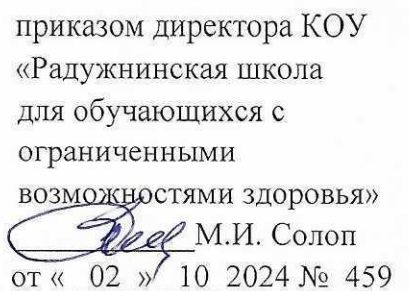 приказом директора КОУ
«Радужнинская школа
для обучающихся с
ограниченными
возможностями здоровья»
М.И. Солоп
от « 02 » 10 2024 № 459